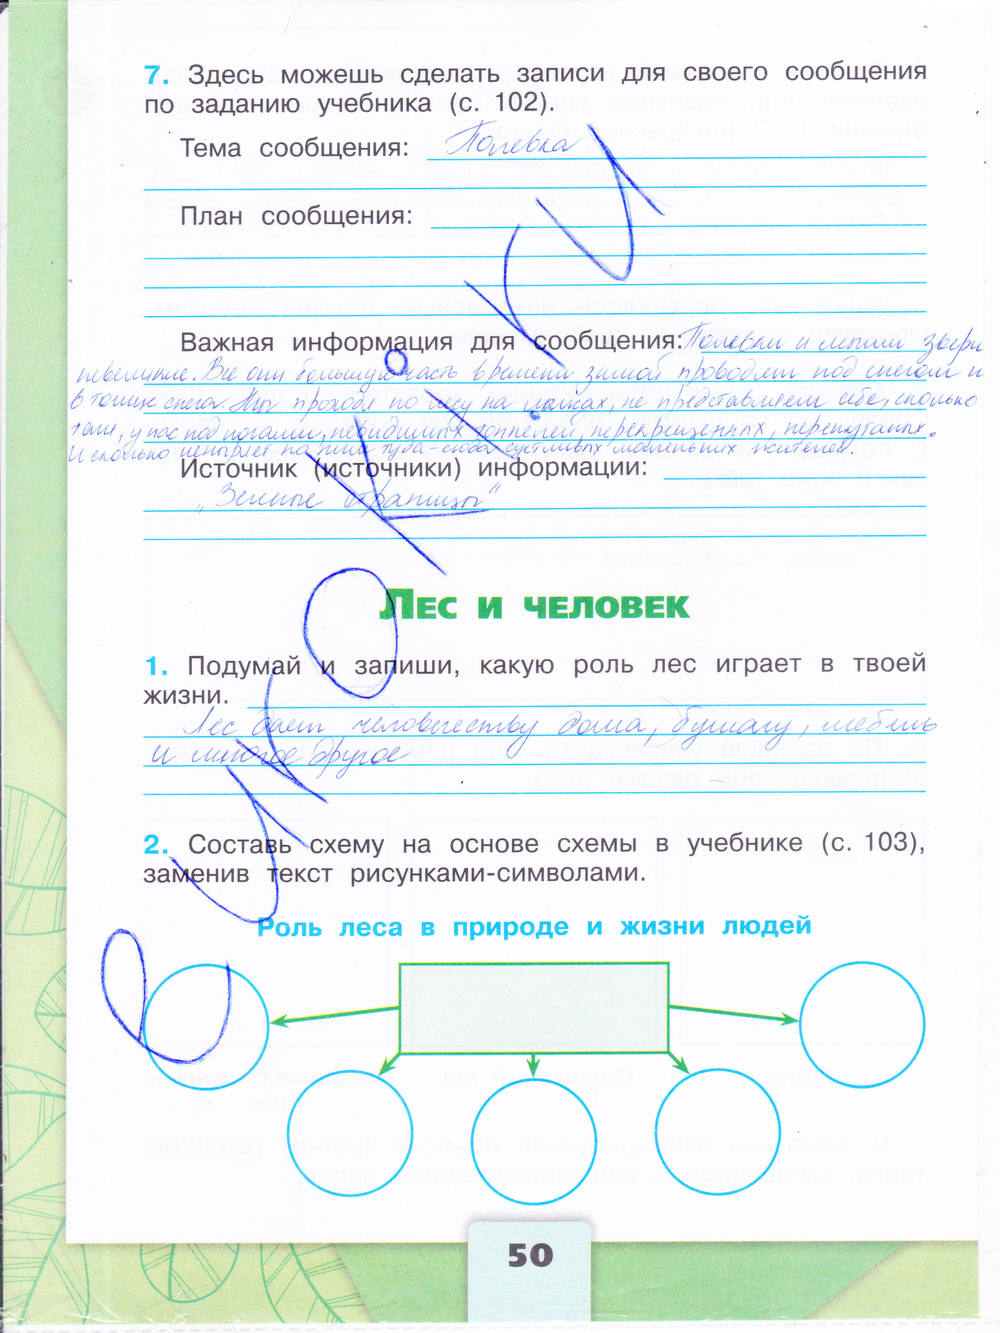 7. Здесь можешь сделать записи для своего сообщения
по заданию учебника (с. 102).
Тема сообщения: Полевка
План сообщения:
Важная информация для сообщения: Полевки и мыши звери
невеликие. Все они большую часть времени зимой проводят под снегом и
в толще снега. Мы проходя по лесу на лыжах, не представляем себе, сколько
там, у нас под ногами, невидимых тоннелей, перекрещенных, перепутанных.
И сколько ныряет по ним туда-сюда суетливых маленьких жителей.
Источник (источники) информации:
"Зеленые страницы"
ЛЕС И ЧЕЛОВЕК
1. Подумай и запиши, какую роль лес играет в твоей
жизни.
Лес дает человечеству дома, бумагу, мебель
и многое другое
2. Составь схему на основе схемы в учебнике (с. 103),
заменив текст рисунками-символами.
Роль леса в природе и жизни людей
50